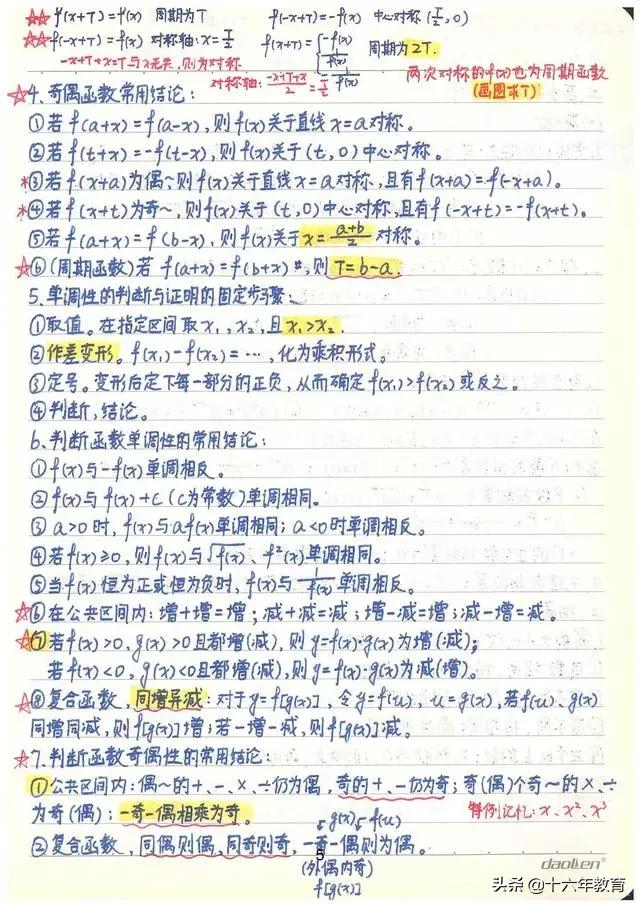 ☆☆ f(x+T)=f(x) 周期为T f(-x+T)=-f(x) 中心对称(T/2,0)
☆☆ f(-x+T)=f(x) 对称轴:x=T/2 f(x+T)={-f(x) 1/f(x) -1/f(x) 周期为2T.
-x+T+x=T与x无关,则为对称 对称轴:(-x+T+x)/2=T/2 两次对称的f(x)也为周期函数
(画图求T)
☆4、奇偶函数常用结论:
①若f(a+x)=f(a-x),则f(x)关于直线x=a对称。
②若f(t+x)=-f(t-x),则f(x)关于(t,0)中心对称。
*③若f(x+a)为偶~,则f(x)关于直线x=a对称,且有f(x+a)=f(-x+a)。
*④若f(x+t)为奇~,则f(x)关于(t,0)中心对称,且有f(-x+t)=-f(x+t)。
⑤若f(a+x)=f(b-x),则f(x)关于x=(a+b)/2对称。
☆⑥(周期函数)若f(a+x)=f(b+x),则T=b-a.
5、单调性的判断与证明的固定步骤:
①取值。在指定区间取x₁,x₂,且x₁>x₂.
②作差变形。f(x₁)-f(x₂)=…,化为乘积形式。
③定号。变形后定下每一部分的正负,从而确定f(x₁)>f(x₂)或反之。
④判断,结论。
6、判断函数单调性的常用结论:
①f(x)与-f(x)单调相反。
②f(x)与f(x)+C(C为常数)单调相同。
③a>0时,f(x)与af(x)单调相同;a<0时单调相反。
④若f(x)≥0,则f(x)与√f(x)、f²(x)单调相同。
⑤当f(x)恒为正或恒为负时,f(x)与1/f(x)单调相反。
☆⑥在公共区间内:增+增=增;减+减=减;增-减=增;减-增=减。
☆⑦若f(x)>0,g(x)>0且都增(减),则y=f(x)·g(x)为增(减);
若f(x)<0,g(x)<0且都增(减),则y=f(x)·g(x)为减(增)。
☆⑧复合函数,同增异减:对于y=f[g(x)],令y=f(u),u=g(x),若f(u)、g(x)
同增同减,则f[g(x)]增;若一增一减,则f[g(x)]减。
☆7、判断函数奇偶性的常用结论:
①公共区间内:偶~的+、-、×、÷仍为偶,奇的+、-仍为奇;奇(偶)个奇~的×、÷
为奇(偶);一奇一偶相乘为奇。 特例记忆:x、x²、x³
↓g(x)↓f(u)
②复合函数,同偶则偶,同奇则奇,一奇一偶则为偶。
5
(外偶内奇)
f[g(x)]
daolen®
头条@十六年教育